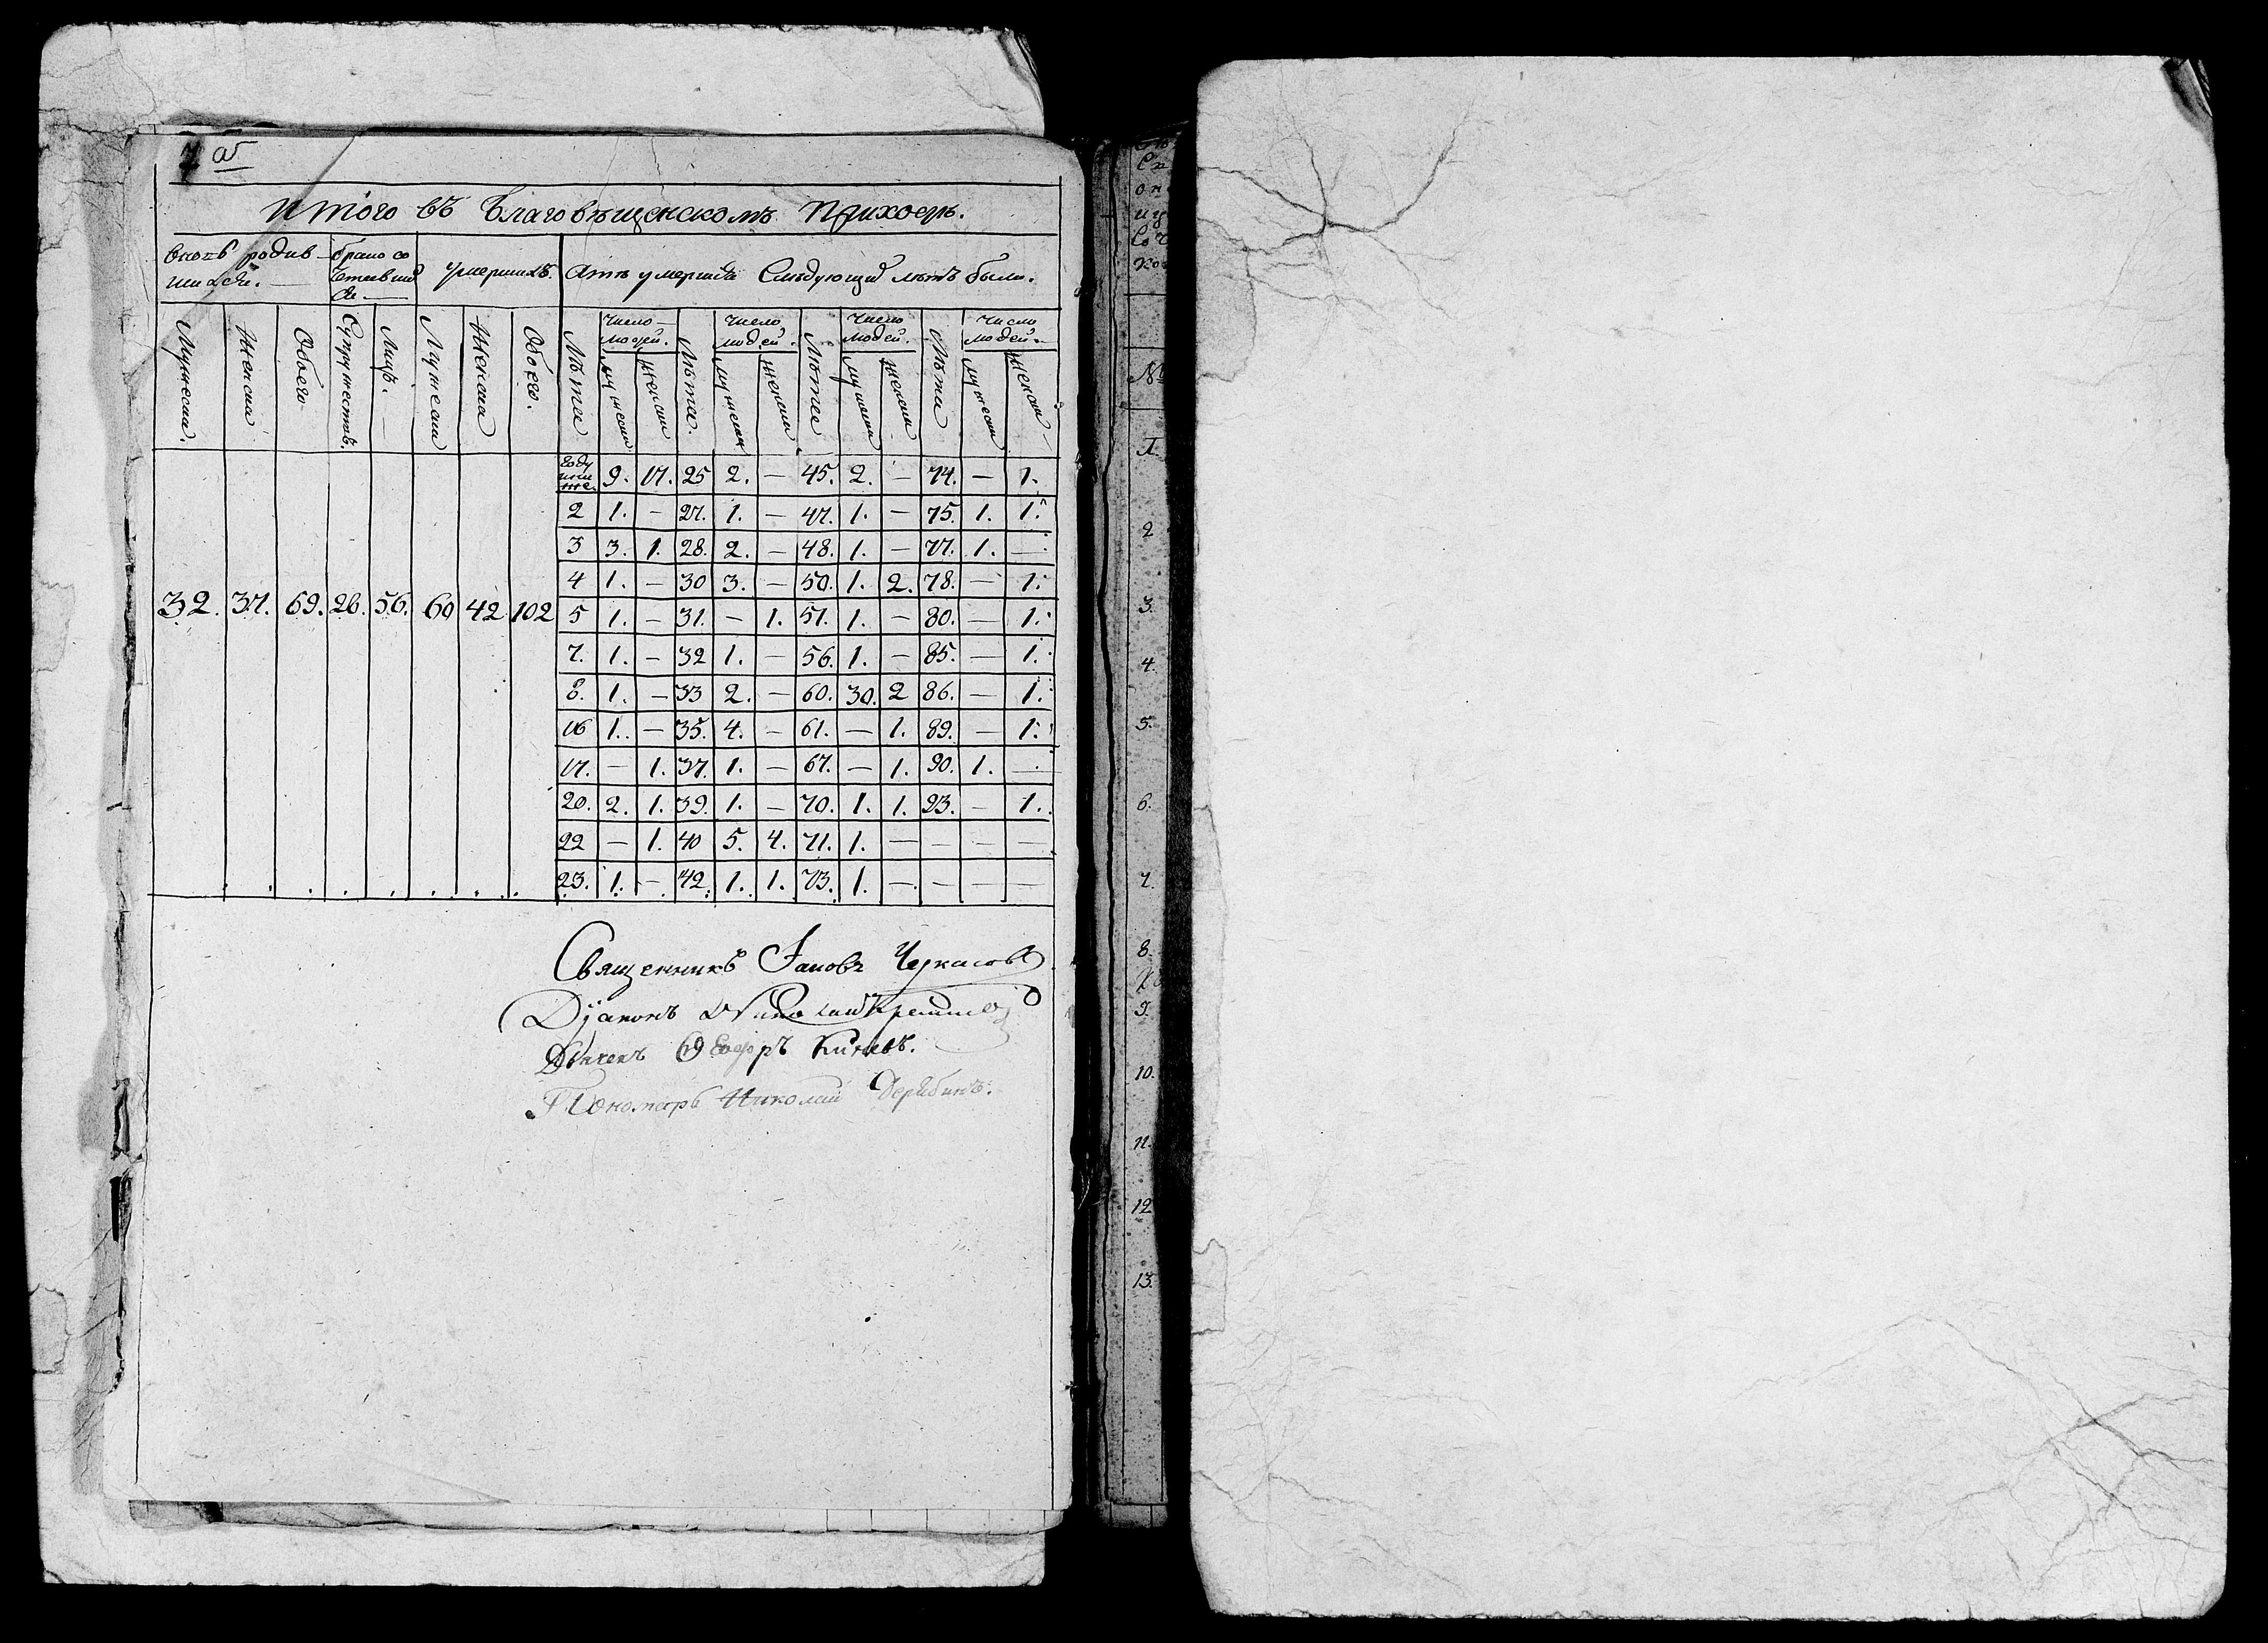 Итого въ Благовѣщенскомъ Приходѣ.
родив
шихся.
брако со
четавших
ся
Умершихъ.
Слѣдующих лѣтъ были.
Мужеска. Женска Обоего Супружествъ. Лицъ. Мужеска Женска Обоего. Лѣта Число людей. мужеска женска Лѣта. Число людей. мужеска женска Лѣта Число людей. мужеска женска Лѣта Число людей. мужеска женска
32. 37. 69. 28. 56. 60 42 102
9. 17. 25 2. — 45. 2. — 74. — 1.
2 1. — 27. 1. — 47. 1. — 75. 1. 1.
3 3. 1. 28. 2. — 48. 1. — 77. 1. —
4 1. — 30 3. — 50. 1. 2. 78. — 1.
5 1. — 31. — 1. 51. 1. — 80. — 1.
7. 1. — 32 1. — 56. 1. — 85. — 1.
8. 1. — 33 2. — 60. 30. 2 86. — 1.
16 1. — 35. 4. — 61. — 1. 89. — 1.
17. — 1. 37. 1. — 67. — 1. 90. 1. —
20. 2. 1. 39. 1. — 70. 1. 1. 93. — 1.
22 — 1. 40 5. 4. 71. 1. — — — —
23. 1. — 42. 1. 1. 73. 1. — — — —
Священникъ Іаковъ Черкасовъ
Діаконъ Николай
Дьячекъ Ѳеодоръ
Пономарь Николай Дерябинъ.
№
1.
2
3.
4.
5.
6.
7.
8.
9.
10.
11.
12
13.